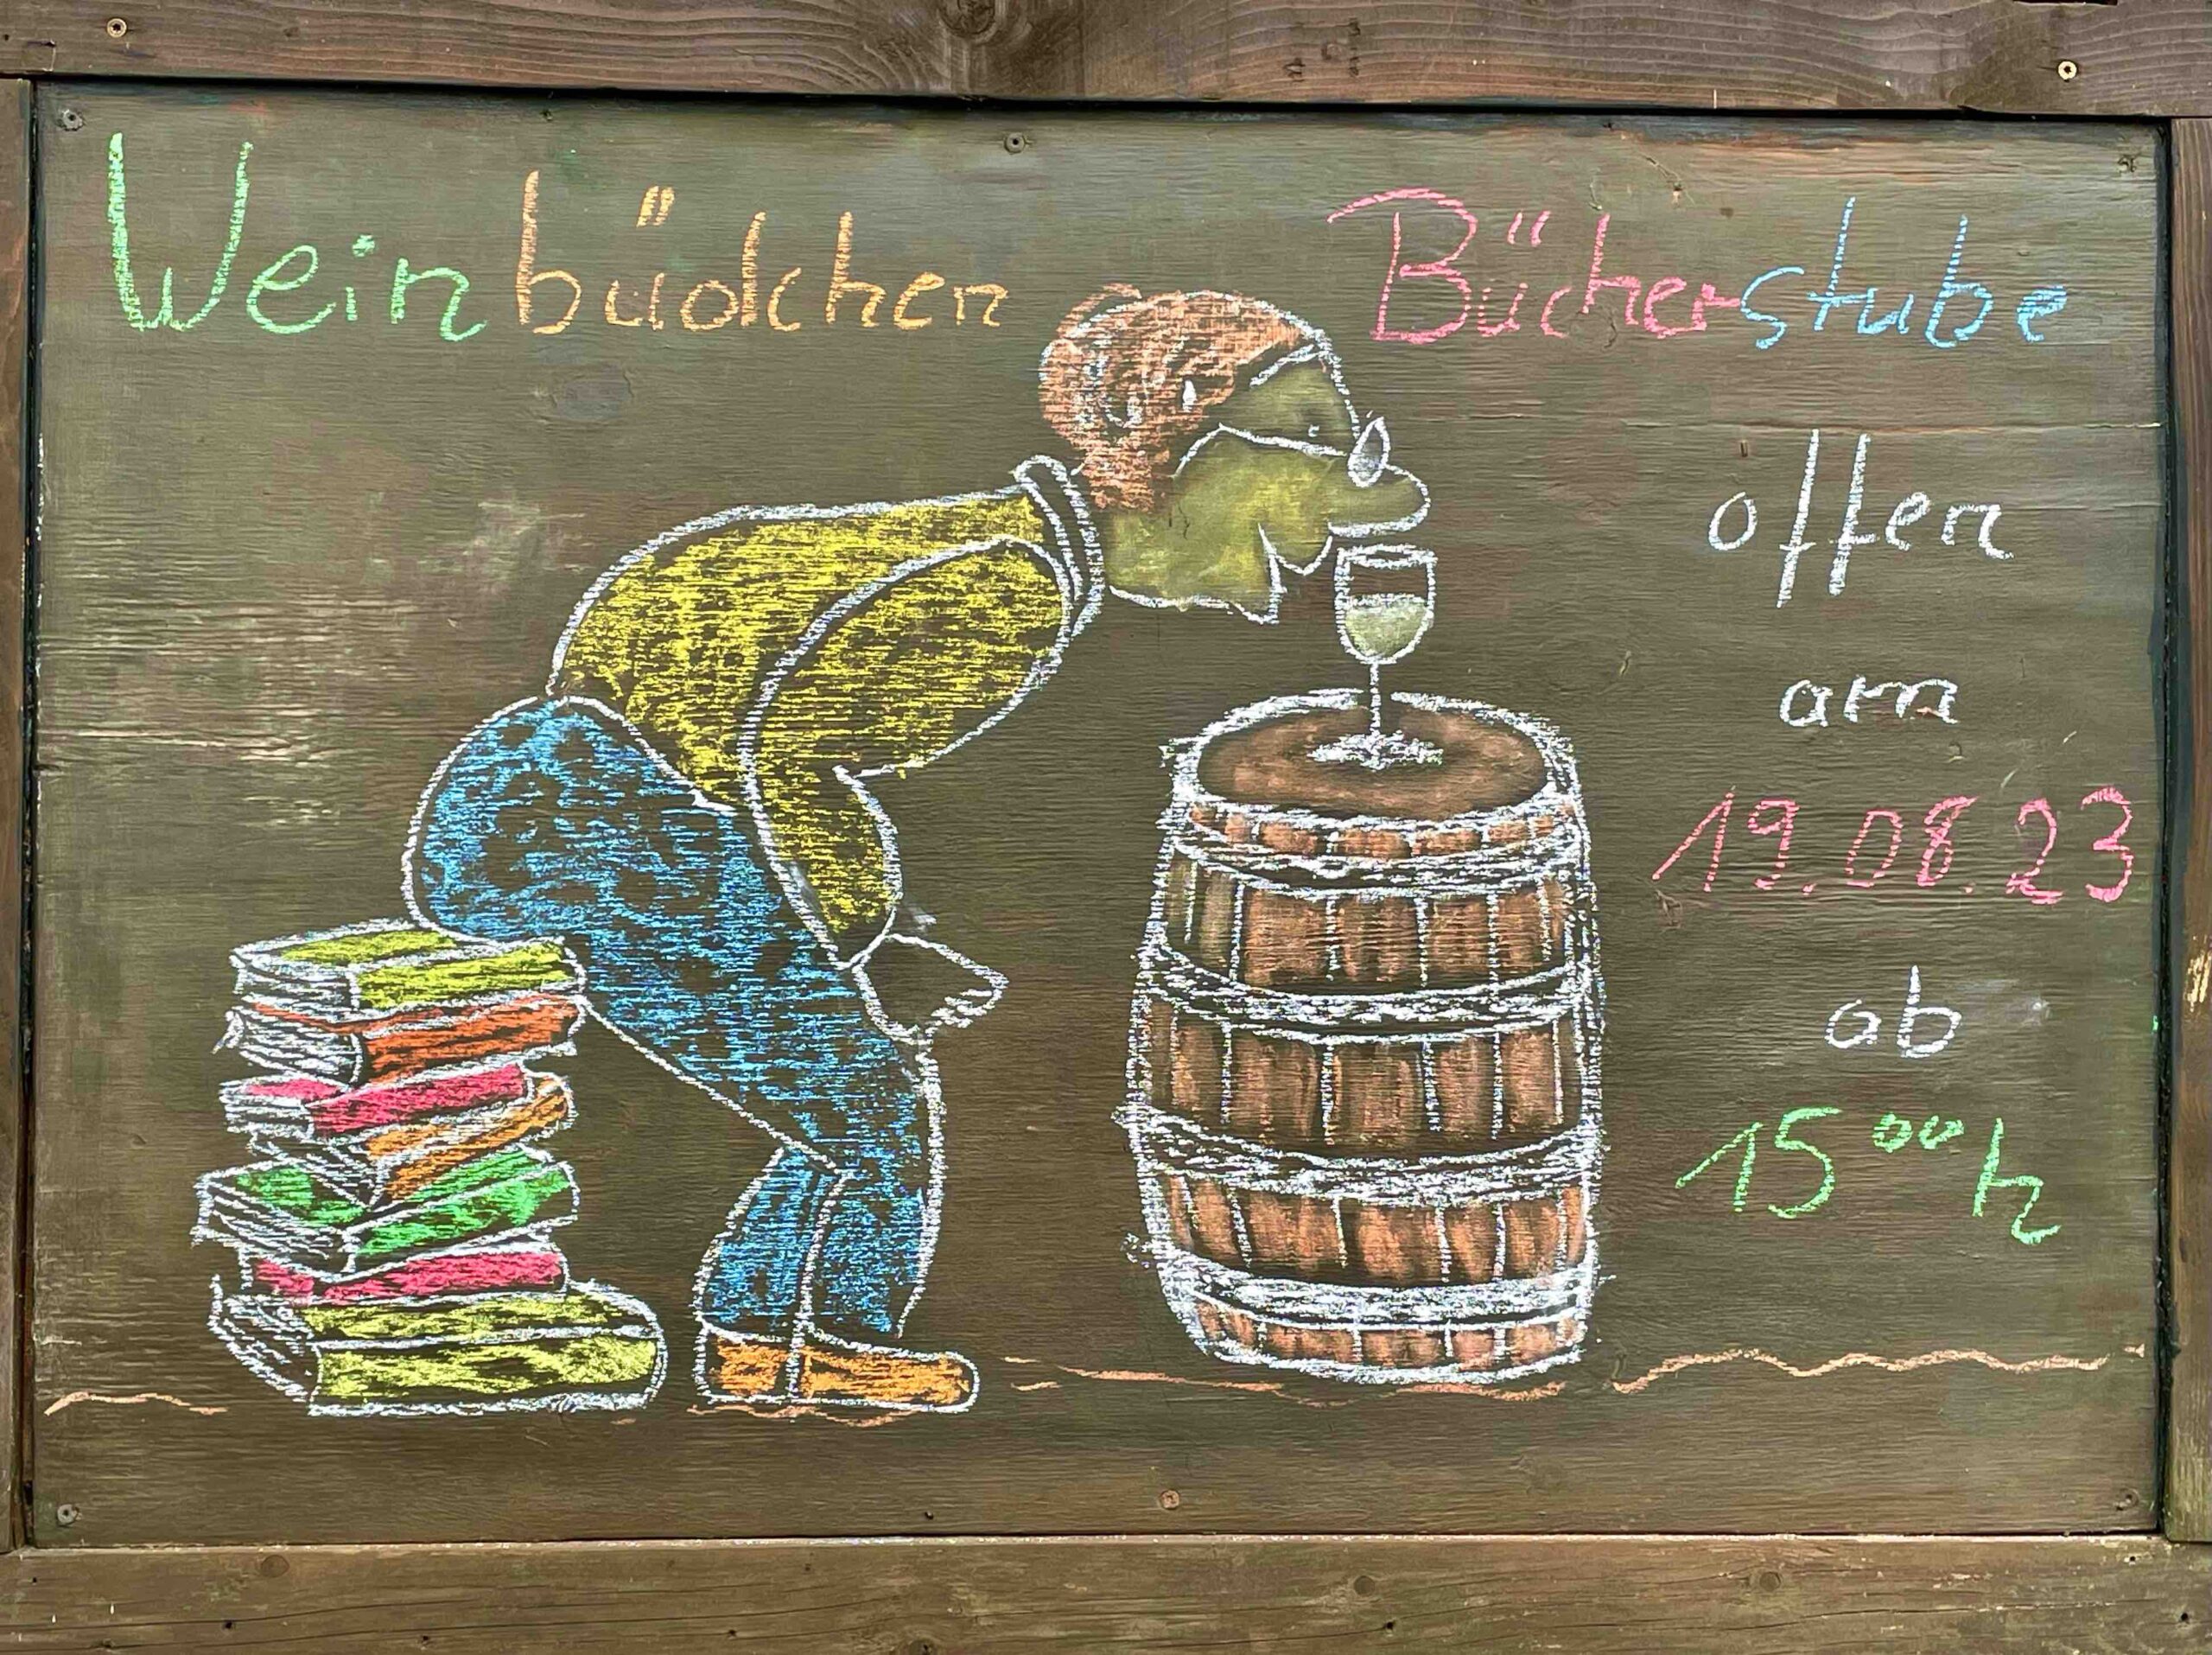 Weinbüdchen
Bücherstube
offen
am
19.08.23
ab
15⁰⁰h